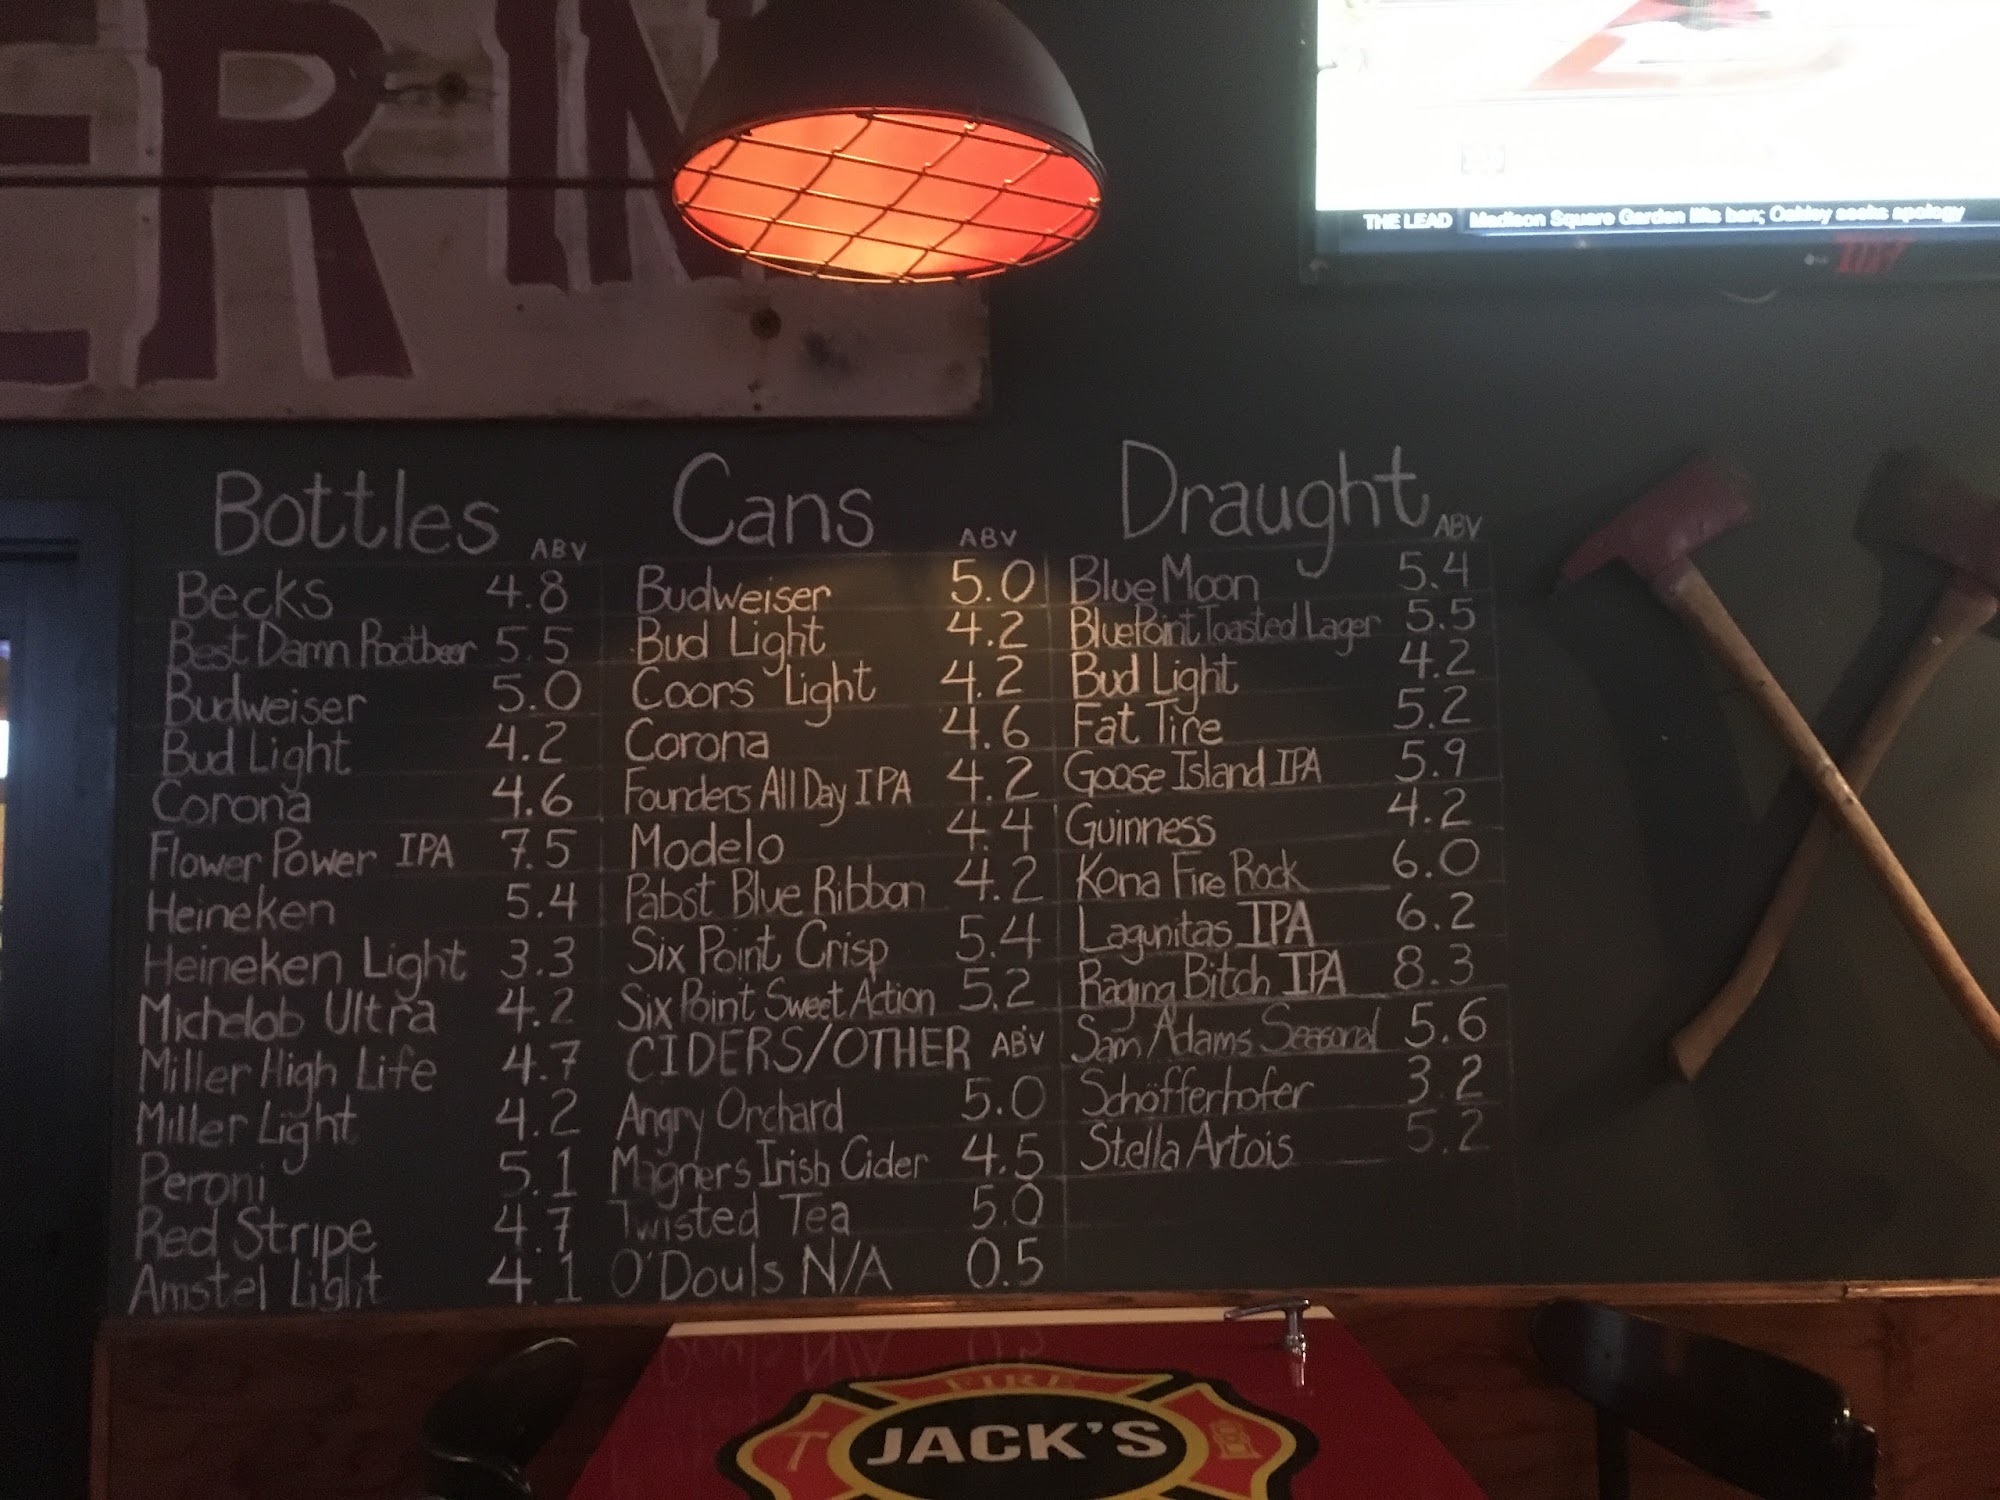 ERIN
THE LEAD Madison Square Garden lifts ban; Oakley seeks apology
Bottles ABV
Becks 4.8
Best Damn Rootbeer 5.5
Budweiser 5.0
Bud Light 4.2
Corona 4.6
Flower Power IPA 7.5
Heineken 5.4
Heineken Light 3.3
Michelob Ultra 4.2
Miller High Life 4.7
Miller Light 4.2
Peroni 5.1
Red Stripe 4.7
Amstel Light 4.1
Cans ABV
Budweiser 5.0
Bud Light 4.2
Coors Light 4.2
Corona 4.6
Founders All Day IPA 4.2
Modelo 4.4
Pabst Blue Ribbon 4.2
Six Point Crisp 5.4
Six Point Sweet Action 5.2
CIDERS/OTHER ABV
Angry Orchard 5.0
Magners Irish Cider 4.5
Twisted Tea 5.0
O'Douls N/A 0.5
Draught ABV
Blue Moon 5.4
BluePoint Toasted Lager 5.5
Bud Light 4.2
Fat Tire 5.2
Goose Island IPA 5.9
Guinness 4.2
Kona Fire Rock 6.0
Lagunitas IPA 6.2
Raging Bitch IPA 8.3
Sam Adams Seasonal 5.6
Schöfferhofer 3.2
Stella Artois 5.2
FIRE
JACK'S